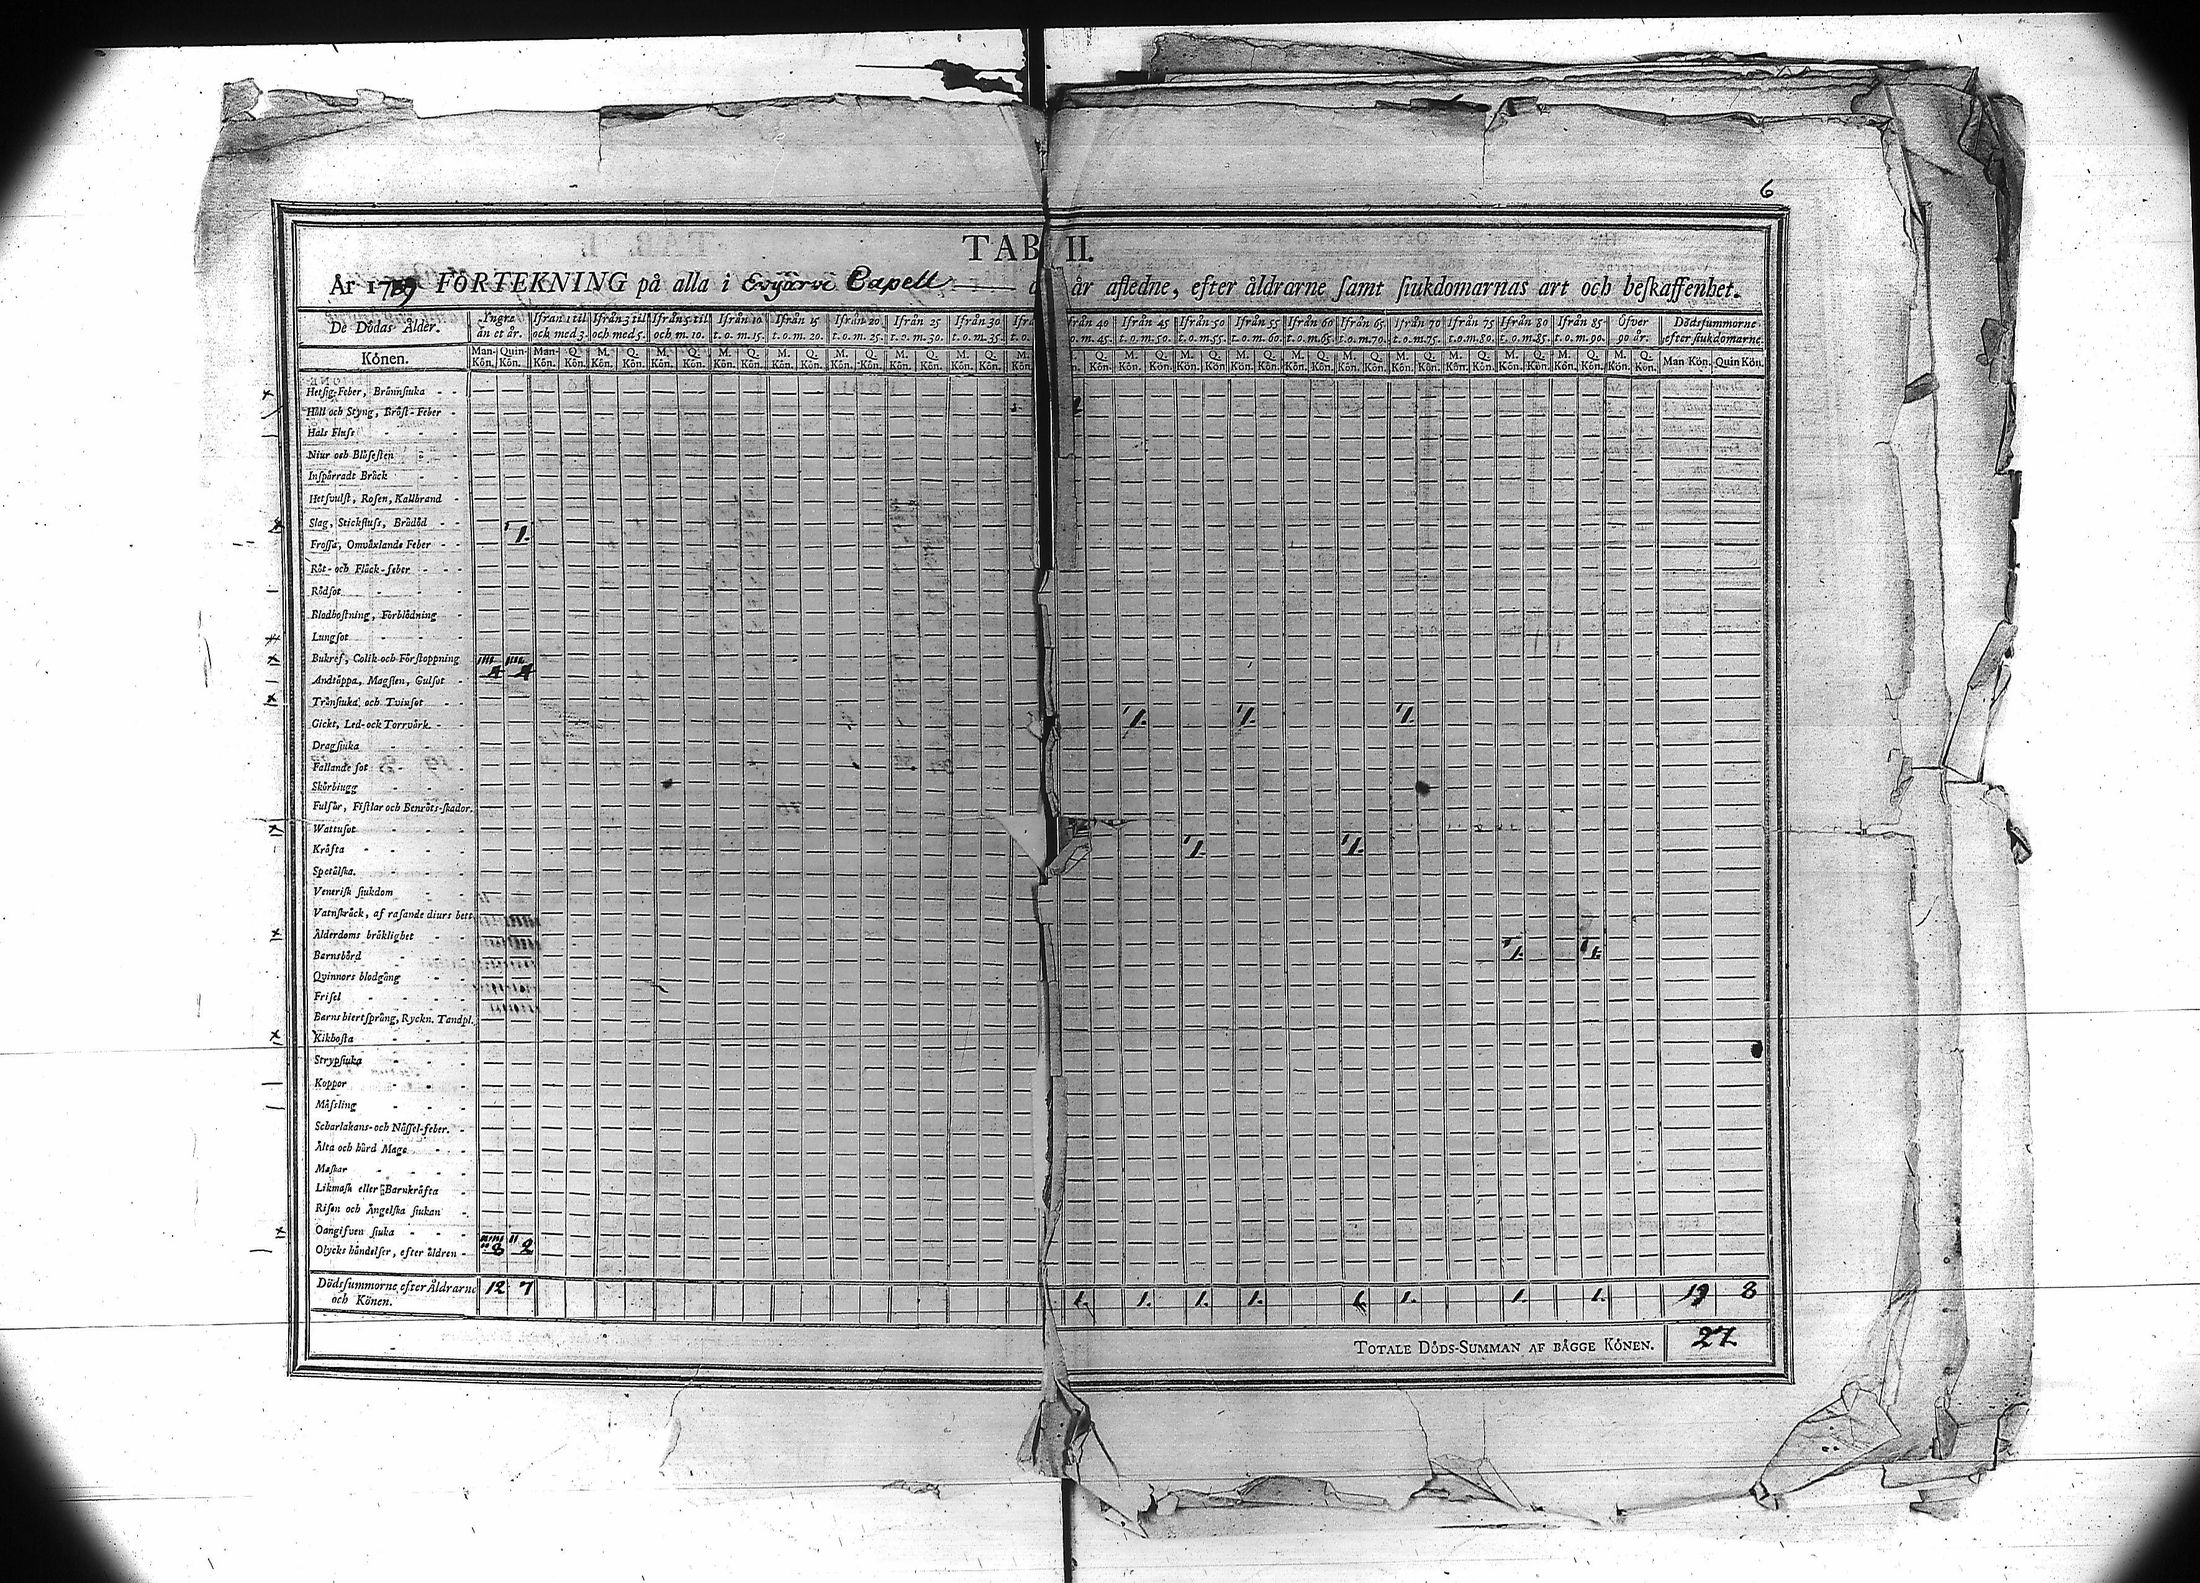 6
TAB II.
År 1789 FÖRTEKNING på alla i Evijärvi Capell år afledne, efter åldrarne samt siukdomarnas art och beskaffenhet.
De Dödas Ålder. Yngre än et år. Ifrån 1 til och med 3. Ifrån 3 til och med 5. Ifrån 5 til och m. 10. Ifrån 10 t.o.m. 15. Ifrån 15 t.o.m. 20. Ifrån 20 t.o.m. 25. Ifrån 25 t.o.m. 30. Ifrån 30 t.o.m. 35. 40 t.o.m. 45. Ifrån 45 t.o.m. 50. Ifrån 50 t.o.m. 55. Ifrån 55 t.o.m. 60. Ifrån 60 t.o.m. 65. Ifrån 65 t.o.m. 70. Ifrån 70 t.o.m. 75. Ifrån 75 t.o.m. 80. Ifrån 80 t.o.m. 85. Ifrån 85 t.o.m. 90. Öfver 90 år. Dödssummorne efter siukdomarne.
Könen. Man-Kön. Quin-Kön. Man-Kön. Q. Kön. M. Kön. Q. Kön. M. Kön. Q. Kön. M. Kön. Q. Kön. M. Kön. Q. Kön. M. Kön. Q. Kön. M. Kön. Q. Kön. M. Kön. Q. Kön. M. Kön. Q. Kön. M. Kön. Q. Kön. M. Kön. Q. Kön. M. Kön. Q. Kön. M. Kön. Q. Kön. M. Kön. Q. Kön. M. Kön. Q. Kön. M. Kön. Q. Kön. M. Kön. Q. Kön. M. Kön. Q. Kön. M. Kön. Q. Kön. Man Kön. Quin Kön.
Hetsig-Feber, Brännsiuka
Håll och Styng, Bröst-Feber
Hals Fluss
Niur och Blåsesten
Inspärradt Bråck
Hetsvulst, Rosen, Kallbrand
Slag, Stickfluss, Brådöd 1.
Frossa, Omväxlande Feber
Röt- och Fläck-feber
Rödsot
Blodhostning, Förblödning
Lungsot
Bukref, Colik och Förstoppning 4 4
Andtäppa, Magsten, Gulsot
Trånsiuka, och Tvinsot 1. 1. 1.
Gickt, Led- ock Torrvärk
Dragsiuka
Fallande sot
Skörbiugg
Fulsår, Fistlar och Benröts-skador.
Wattusot 1. 1.
Kräfta
Spetälska.
Venerisk siukdom
Vatnskräck, af rasande diurs bett
Ålderdoms bräklighet 1. 1.
Barnsbörd
Qvinnors blodgång
Frisel
Barns hiertsprång, Ryckn. Tandpl.
Kikhosta
Strypsiuka
Koppor
Mässling
Scharlakans- och Nässel-feber.
Älta och hård Mage
Maskar
Likmask eller Barnkräfta
Risen och Ängelska siukan
Oangifven siuka 8 2
Olycks händelser, efter åldren
Dödssummorne efter Åldrarne och Könen. 12 7 1. 1. 1. 1. 1. 1. 1. 1. 19 8
TOTALE DÖDS-SUMMAN AF BÅGGE KÖNEN. 27